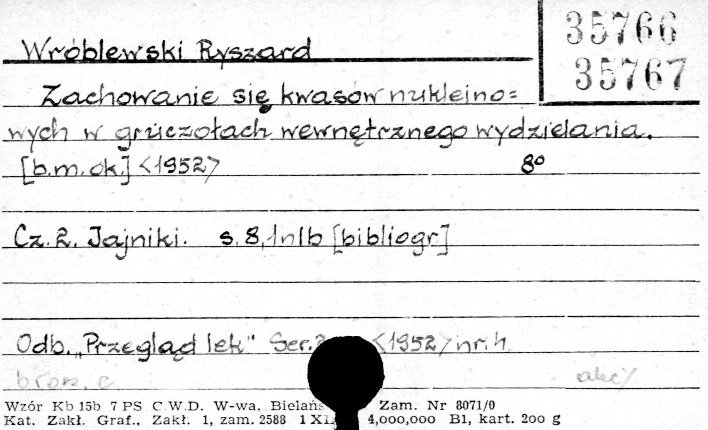 35766
35767
Wróblewski Ryszard
Zachowanie się kwasów nukleino=
wych w gruczołach wewnętrznego wydzielania.
[b.m.ok.] <1952> 8°
Cz. 2. Jajniki. s. 8, 1nlb [bibliogr]
Odb. „Przegląd lek" Ser. <1952> nr. 4
brosz. c
Wzór Kb 15b 7 PS C.W.D. W-wa, Zam. Nr 8071/0
Kat. Zakł. Graf., Zakł. 1, zam. 2588 4,000,000 B1, kart. 200 g